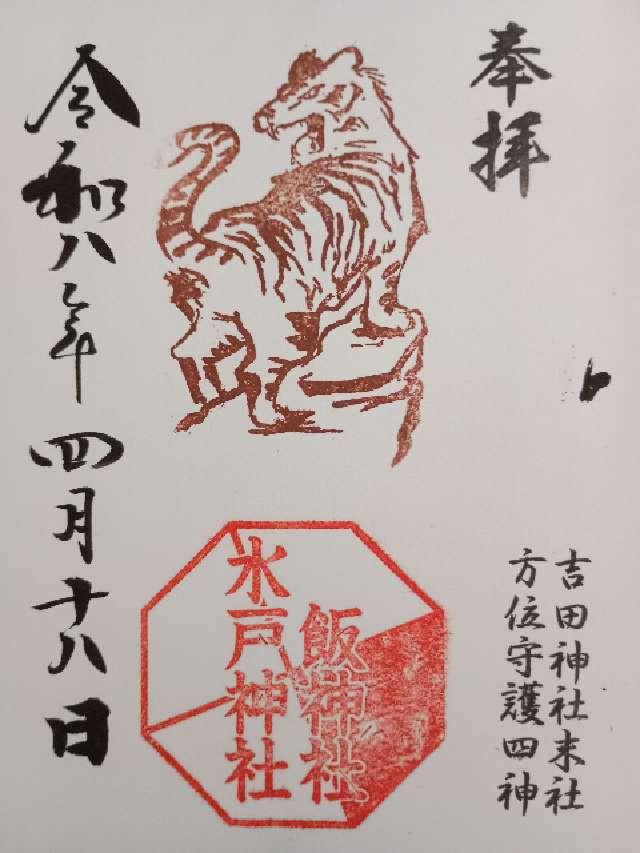 奉拝
吉田神社末社
方位守護四神
飯神社
水戸神社
令和八年四月十八日